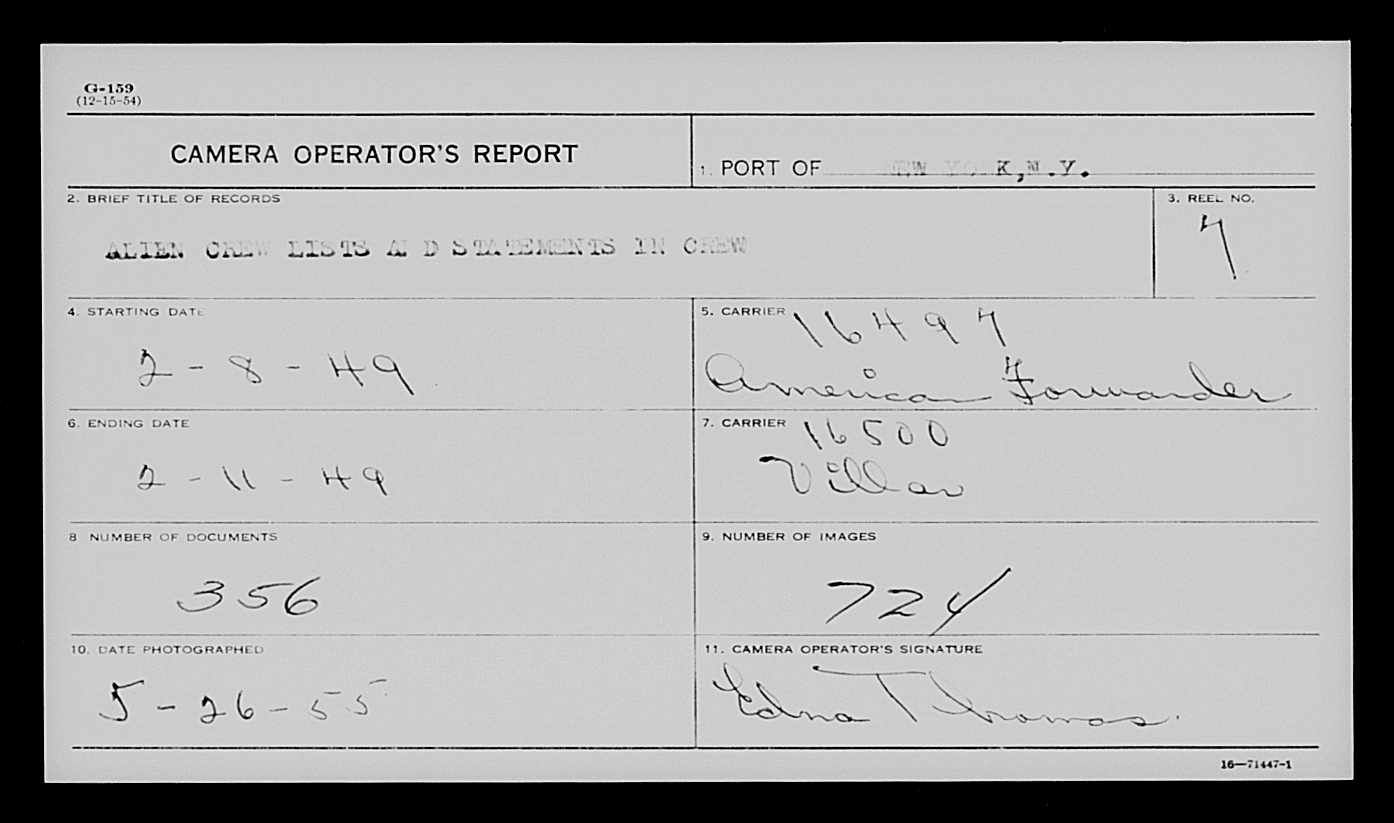 G-159
(12-15-54)
CAMERA OPERATOR'S REPORT
1. PORT OF NEW YORK, N.Y.
2. BRIEF TITLE OF RECORDS
ALIEN CREW LISTS AND STATEMENTS IN CREW
3. REEL NO.
7
4. STARTING DATE
2-8-49
5. CARRIER 16497
American Forwarder
6. ENDING DATE
2-11-49
7. CARRIER 16500
Villar
8 NUMBER OF DOCUMENTS
356
9. NUMBER OF IMAGES
724
10. DATE PHOTOGRAPHED
5-26-55
11. CAMERA OPERATOR'S SIGNATURE
Edna Thomas.
16—71447-1